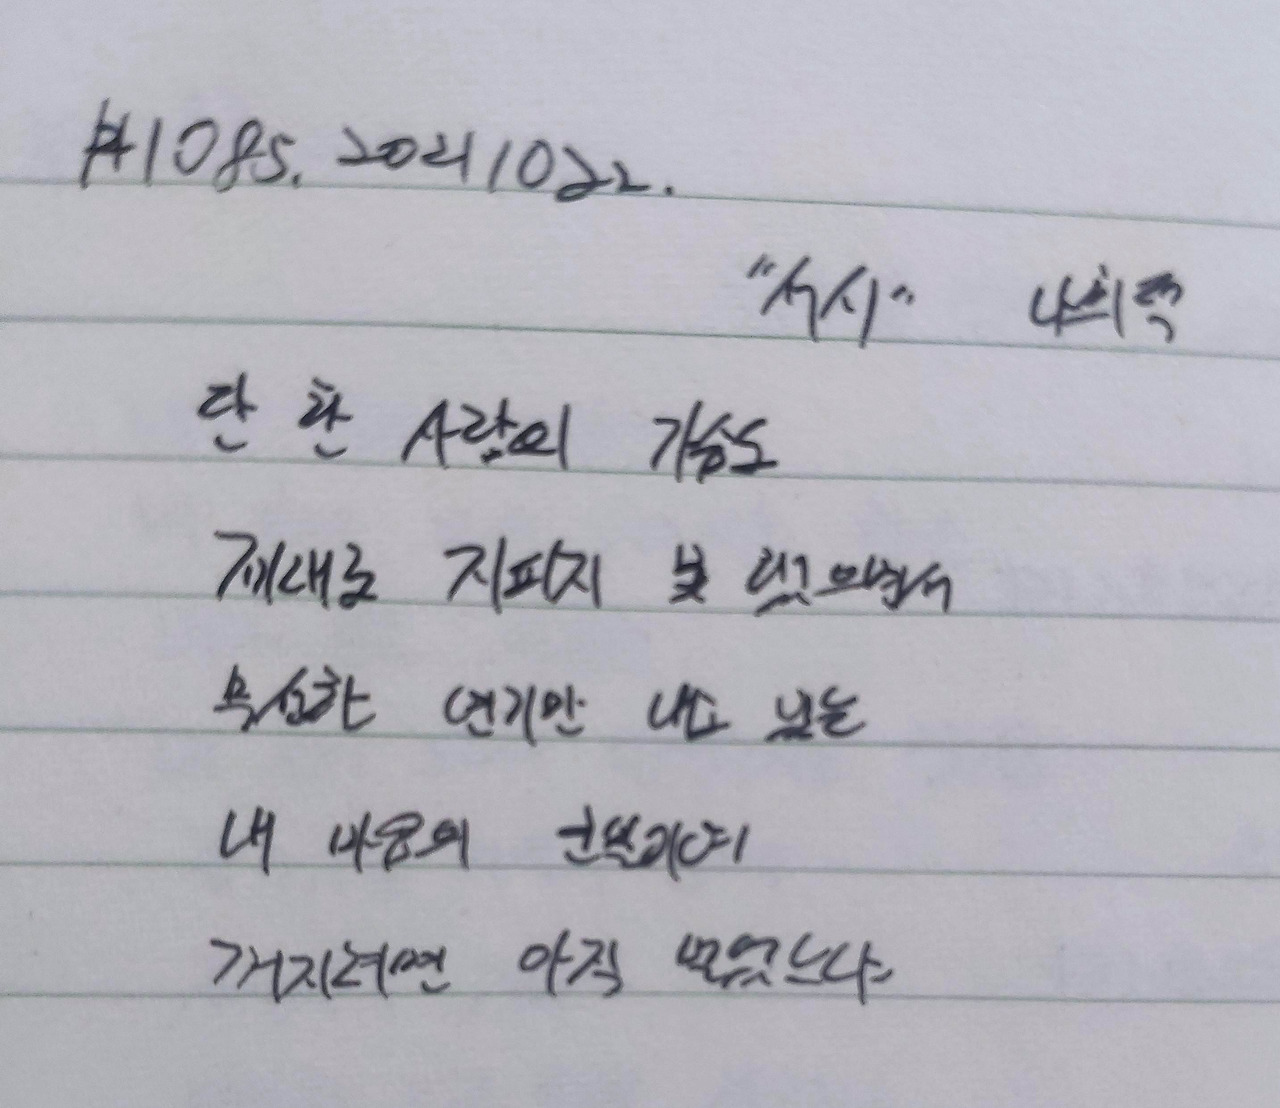 #1085. 20211022.
"서시" 나희덕
단 한 사람의 가슴도
제대로 지피지 못했으면서
무성한 연기만 내고 있는
내 마음의 군불이여
꺼지려면 아직 멀었느냐